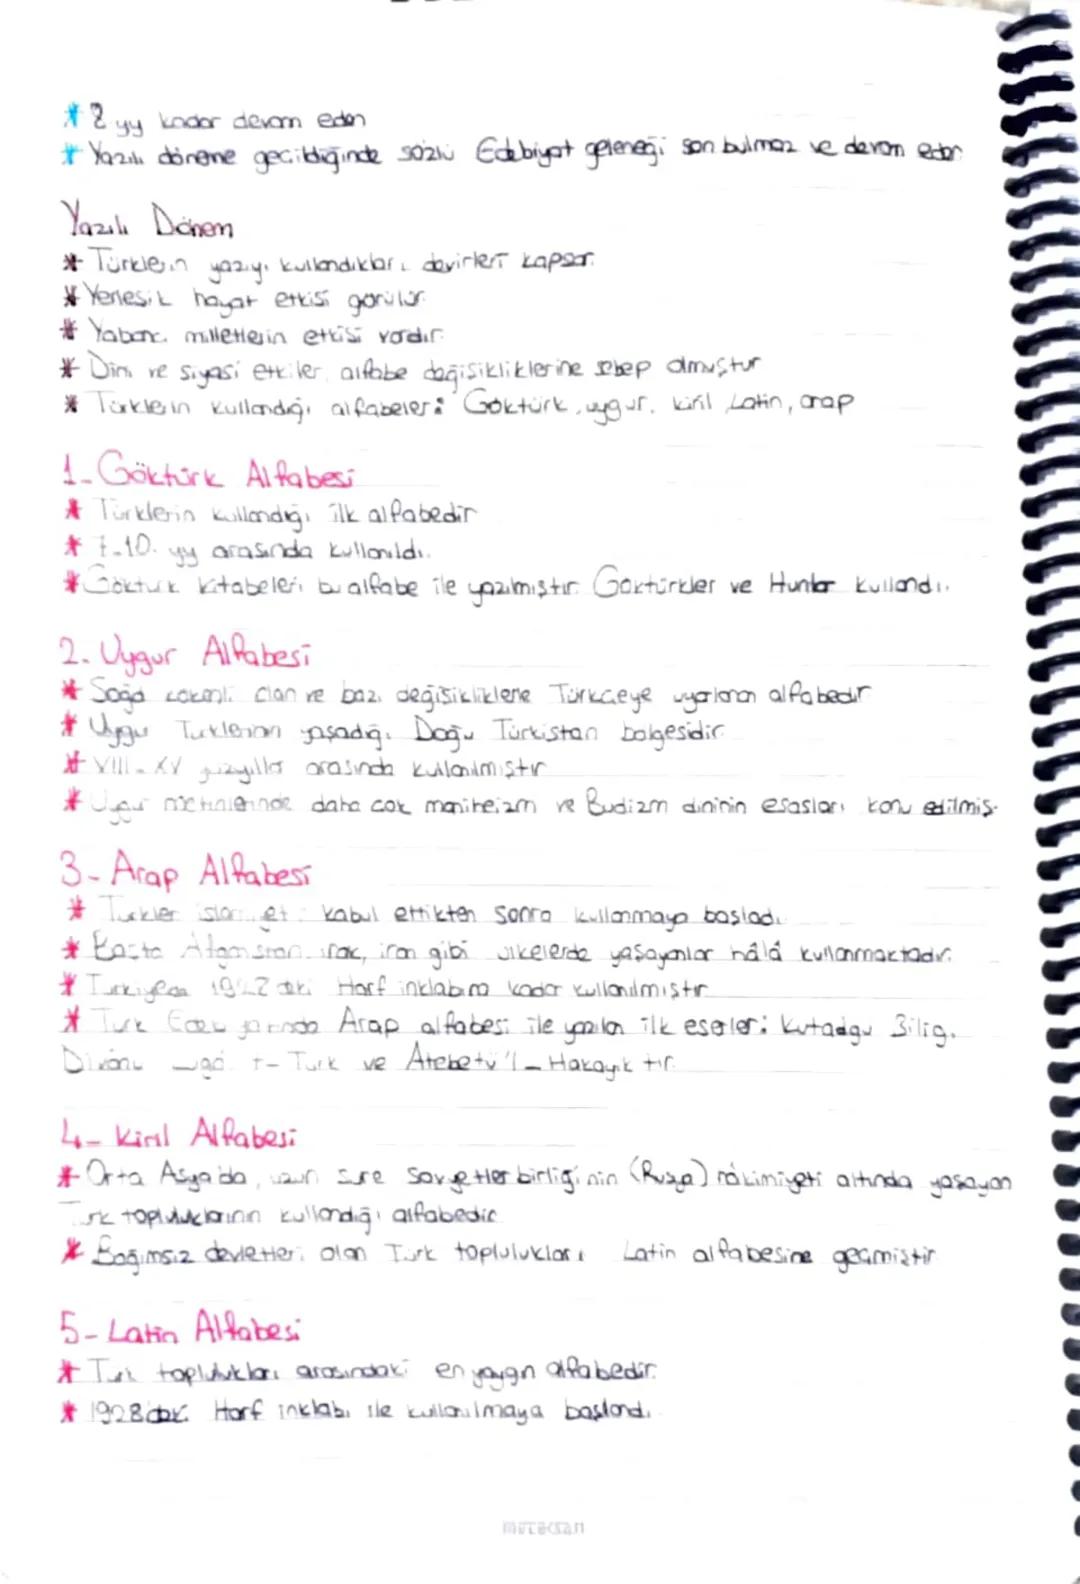 * 8 yy kadar devam eden
* Yazılı döneme geçildiğinde sözlü Edebiyat geleneği son bulmaz ve devam eder
Yazılı Dönem
* Türklerin yazıyı kullandıkları devirleri kapsar.
* Yerleşik hayat etkisi görülür.
* Yabancı milletlerin etkisi vardır.
* Dini ve siyasi etkiler, alfabe değişikliklerine sebep olmuştur
* Türklerin kullandığı alfabeler: Göktürk, uygur, kiril, Latin, arap
1- Göktürk Alfabesi
* Türklerin kullandığı ilk alfabedir
* 7-10. yy arasında kullanıldı.
* Göktürk kitabeleri bu alfabe ile yazılmıştır. Göktürkler ve Hunlar kullandı.
2- Uygur Alfabesi
* Soğd kökenli olan ve bazı değişikliklerle Türkçeye uyarlanan alfabedir
* Uygur Türklerinin yaşadığı Doğu Türkistan bölgesidir.
* VIII - XV yüzyıllar arasında kullanılmıştır
* Uygur metinlerinde daha çok maniheizm ve Budizm dininin esasları konu edilmiş.
3- Arap Alfabesi
* Türkler islamiyeti kabul ettikten sonra kullanmaya başladı.
* Başta Afganistan, ırak, iran gibi ülkelerde yaşayanlar hâlâ kullanmaktadır.
* Türkiyede deki Harf inklabına kadar kullanılmıştır
* Türk Edebiyatında Arap alfabesi ile yazılan ilk eserler: Kutadgu Bilig,
Divanü t-Türk ve Atebetü'l-Hakayık tır.
4- Kiril Alfabesi
* Orta Asya'da, uzun süre Sovyetler birliği'nin (Rusya) hâkimiyeti altında yaşayan
Türk topluluklarının kullandığı alfabedir.
* Bağımsız devletleri olan Türk toplulukları Latin alfabesine geçmiştir
5- Latin Alfabesi
* Türk toplulukları arasındaki en yaygın alfabedir.
* 1928'deki Harf inklabı ile kullanılmaya başlandı.